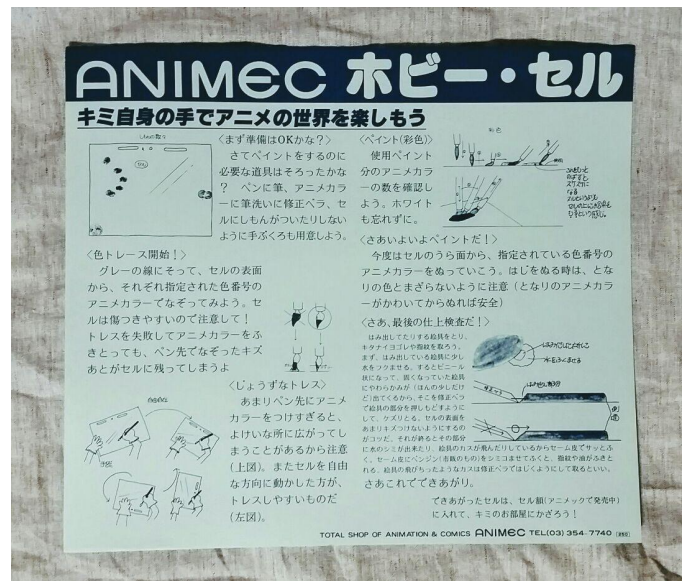 ANIMEC ホビー・セル
キミ自身の手でアニメの世界を楽しもう
〈まず準備はOKかな？〉
さてペイントをするのに
必要な道具はそろったかな
？ ペンに筆、アニメカラ
ーに筆洗いに修正ペラ、セ
ルにしもんがついたりしない
ように手ぶくろも用意しよう。
〈色トレース開始！〉
グレーの線にそって、セルの表面
から、それぞれ指定された色番号の
アニメカラーでなぞってみよう。セ
ルは傷つきやすいので注意して！
トレスを失敗してアニメカラーをふ
きとっても、ペン先でなぞったキズ
あとがセルに残ってしまうよ
〈じょうずなトレス〉
あまりペン先にアニメ
カラーをつけすぎると、
よけいな所に広がってし
まうことがあるから注意
(上図)。またセルを自由
な方向に動かした方が、
トレスしやすいものだ
(左図)。
〈ペイント(彩色)〉
使用ペイント
分のアニメカラ
ーの数を確認し
よう。ホワイト
も忘れずに。
彩色
〈さあいよいよペイントだ！〉
今度はセルのうら面から、指定されている色番号の
アニメカラーをぬっていこう。はじをぬる時は、とな
りの色とまざらないように注意（となりのアニメカラ
ーがかわいてからぬれば安全）
〈さあ、最後の仕上検査だ！〉
はみ出してたりする絵具をとり、
キタナイヨゴレや指紋を取ろう。
まず、はみ出している絵具に少し
水をフクませる。するとビニール
状になって、固くなっていた絵具
にやわらかみが（ほんの少しだけ
ど）出てくるから、そこを修正ペラ
で絵具の部分を押しもどすように
して、ケズリとる。セルの表面を
あまりキズつけないようにするの
がコツだ。それが終るとその部分
に水のシミが出来たり、絵具のカスが飛んだりしているからセーム皮でサッとふ
く。セーム皮にベンジン(市販のもの)をシミコませてふくと、指紋や油がふきと
れる。絵具の飛びちったようなカスは修正ペラではじくようにして取るといい。
さあこれでできあがり。
できあがったセルは、セル額(アニメックで発売中)
に入れて、キミのお部屋にかざろう！
TOTAL SHOP OF ANIMATION & COMICS ANIMEC TEL(03) 354-7740